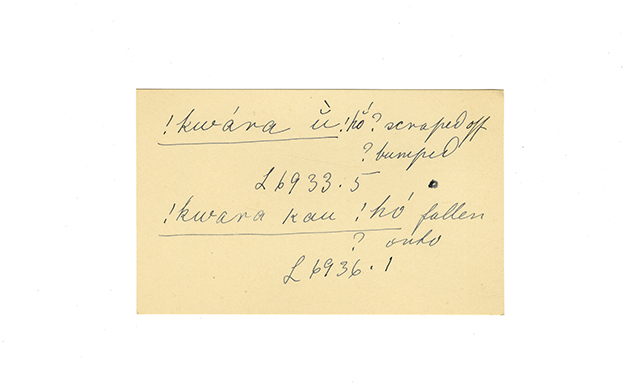 !kwára ŭ̀ !hŏ́ ? scraped off
? bumped
L 6933.5
!kwara kau !hó fallen
? onto
L 6936.1